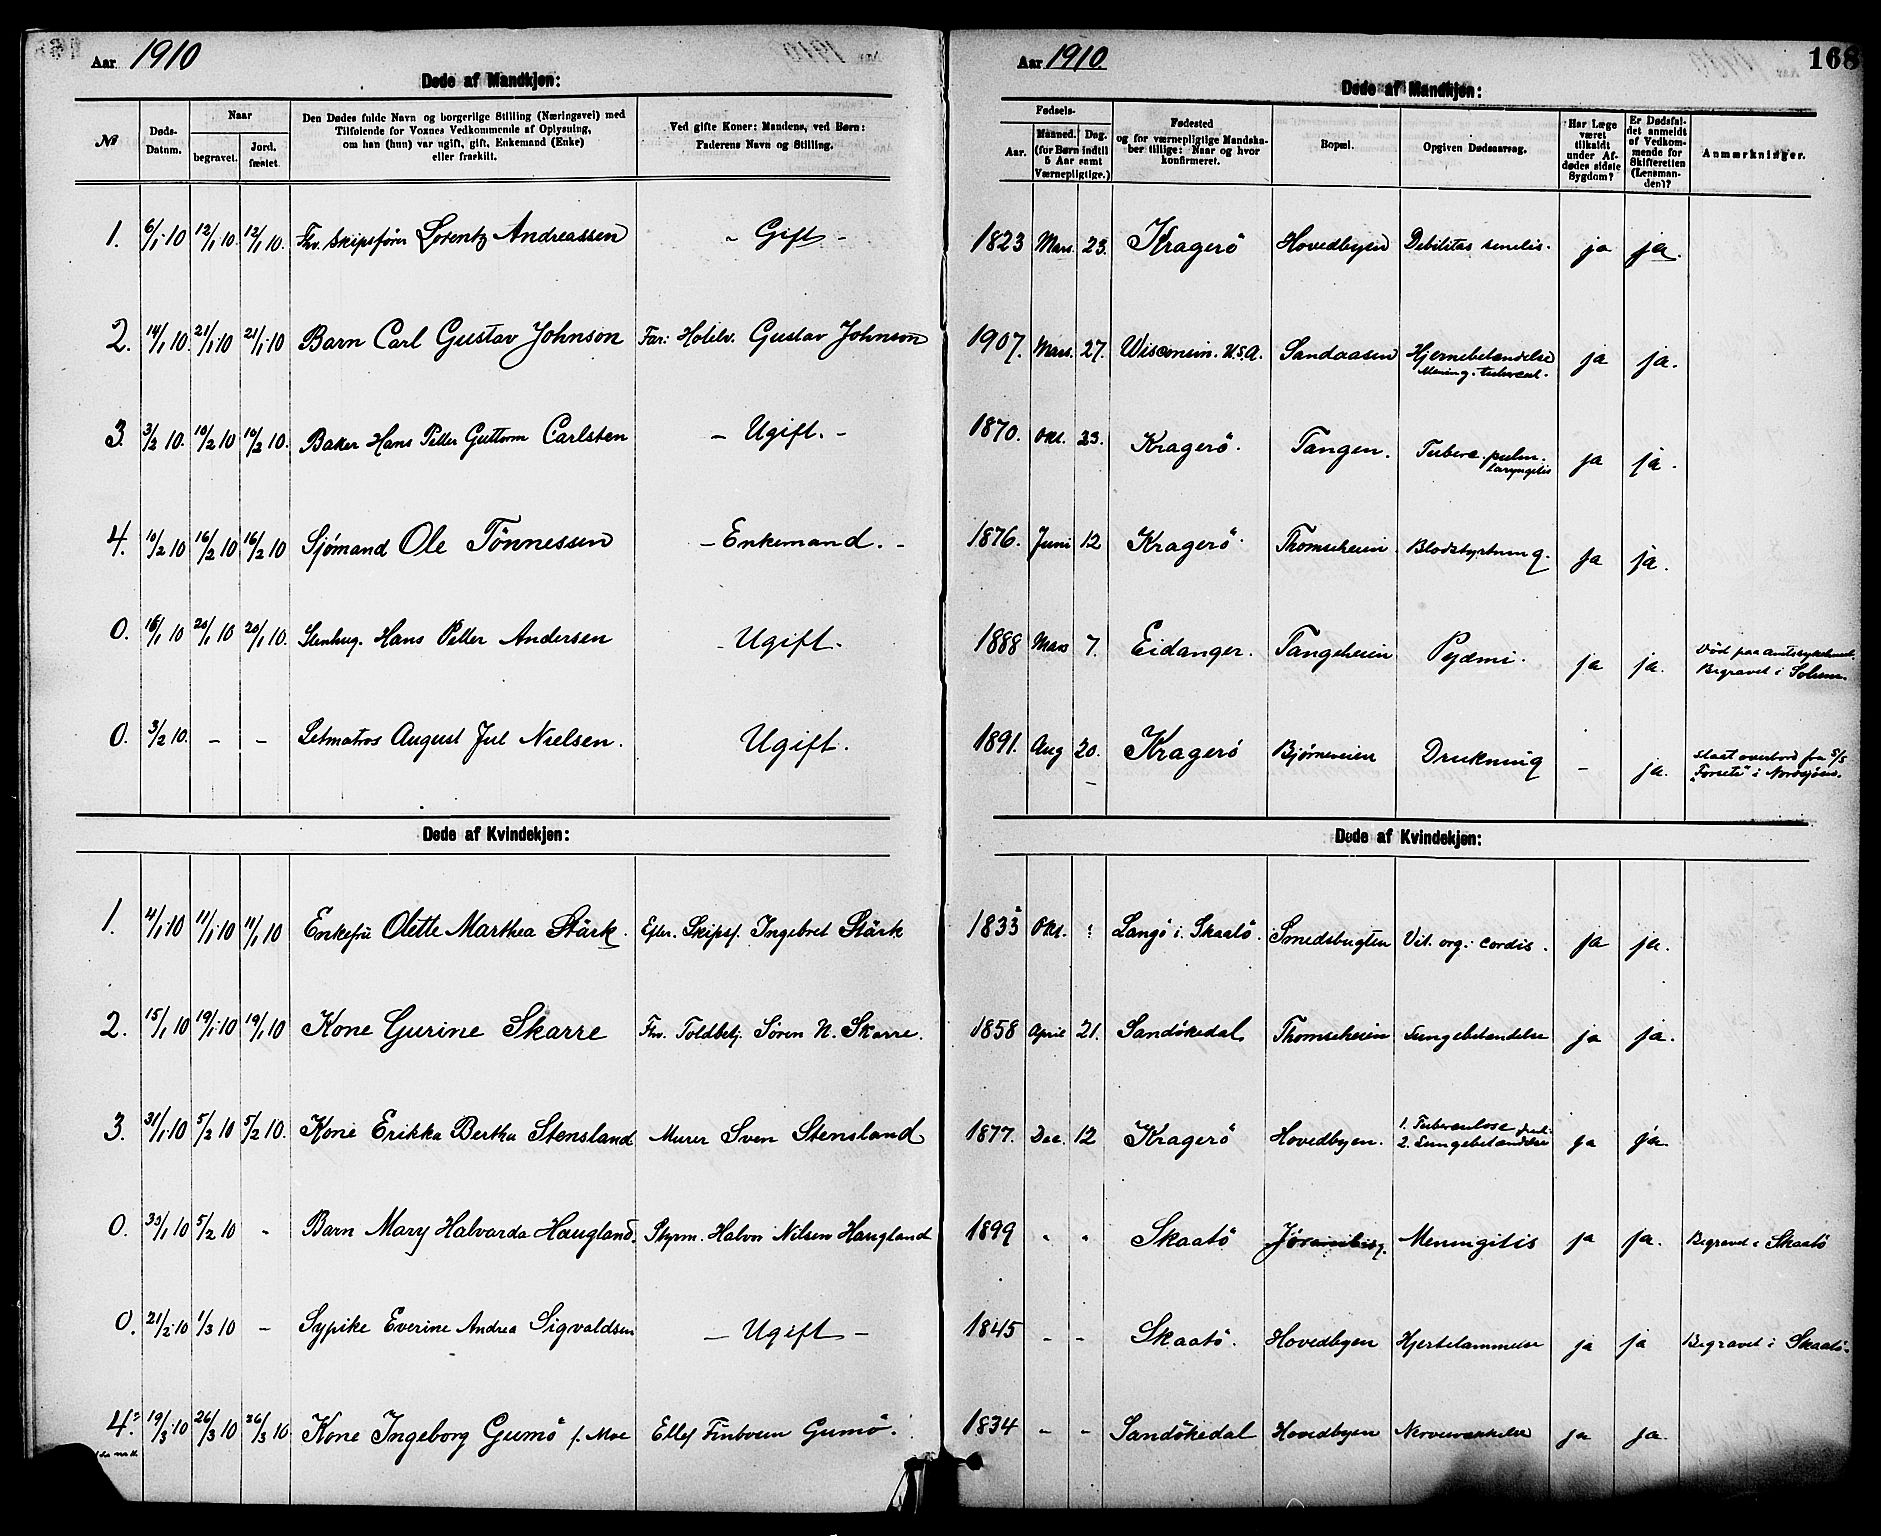 Aar 1910
Døde af Mandkjøn:
№
Døds-
Datum.
Naar
begravet.
Jord.
fæstet.
Den Dødes fulde Navn og borgerlige Stilling (Næringsvei) med
Tilføiende for Voxnes Vedkommende af Oplysning,
om han (hun) var ugift, gift, Enkemand (Enke)
eller fraskilt.
Ved gifte Koner: Mandens, ved Børn:
Faderens Navn og Stilling.
1. 6/1 10 12/1 10. 12/1 10. Fhv. Skipsfører Lorentz Andreassen - Gift -
2. 14/1 10. 21/1 10 21/1 10 Barn Carl Gustav Johnson Far: Hotelv. Gustav Johnson
3. 3/2 10. 10/2 10 10/2 10. Baker Hans Petter Guttorm Carlsten - Ugift. -
4. 10/2 10 16/2 10 16/2 10 Sjømand Ole Tönnessen - Enkemand. -
0. 16/1 10 20/1 10 20/1 10. Stenhug. Hans Petter Andersen - Ugift.
0. 3/2 10. - - Letmatros August Jul Nielsen. Ugift.
Døde af Kvindekjøn:
1. 4/1 10 11/1 10 11/1 10 Enkefru Olette Marthea Stärk. Efter. Skipsf. Ingebret Stärk
2. 15/1 10 19/1 10 19/1 10 Kone Gurine Skarre Fhv. Toldbetj. Sören N. Skarre.
3. 31/1 10 5/2 10 5/2 10. Kone Erikka Bertha Stensland Murer Sven Stensland
0. 30/1 10 5/2 10 - Barn Mary Halvarda Haugland. Styrm. Halvor Nilsen Haugland
0. 21/2 10 1/3 10 - Sypike Everine Andrea Sigvaldsen - Ugift -
4. 19/3 10 26/3 10 26/3 10 Kone Ingeborg Gumö f. Moe Ellef Finbosen Gumö.
Aar 1910.
168
Døde af Mandkjøn:
Fødsels-
Aar.
Maaned. Dag.
(for Børn indtil
5 Aar samt
Værnepligtige.)
Fødested
og for værnepligtige Mandska-
ber tillige: Naar og hvor
konfirmeret.
Bopæl.
Opgiven Dødsaarsag.
Har Læge
været
tilkaldt
under Af-
dødes sidste
Sygdom?
Er Dødsfal-
det anmeldt
af Vedkom-
mende for
Skifteretten
(Lensman-
den)?
Anmærkninger.
1823 Mars. 23. Kragerö Hovedbyen Debilitas senilis. ja ja.
1907. Mars. 27. Wisconsin. U.S.A. Sandaasen Hjernebetændelse ja ja.
1870. Okt. 23. Kragerö. Tangen. Taberc. pulm. ja ja.
laryngitis
1876. Juni 12 Kragerö. Thomseheien Blodstyrtning. ja ja.
1888 Mars 7. Eidanger. Tangeheien Pyæmi. ja ja. Död paa
Begravet i Solum.
1891. Aug 20. Kragerö Bjørneveien Drukning - ja. slaaet overbord fra S/S
"Forseti" i Nordsjøen.
Døde af Kvindekjøn:
1833 Okt. Langö i Skaatö. Smedsbugten Vit. org. cordis. ja ja.
1858 April 21. Sandökedal Thomseheien Lungebetændelse ja ja.
1877. Dec. 12 Kragerö Hovedbyen. 1. Tuberculose pul. ja ja
2. Lungebetændelse
1899 " " Skaatö Meningitis ja ja. Begravet i Skaatö
1845 - - Skaatö. Hovedbyen Hjertelammelse ja ja Begravet i Skaatö.
1834 - - Sandökedal Hovedbyen Nervesvækkelse ja ja.